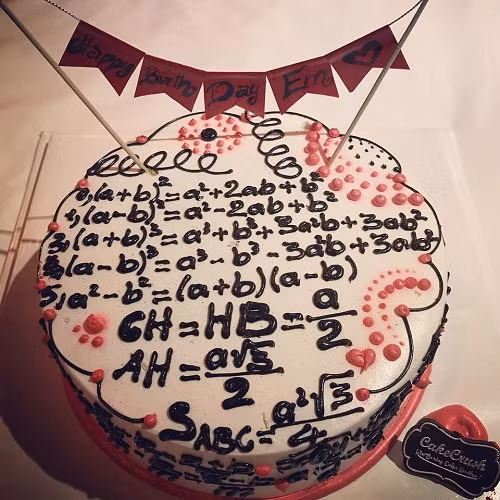 Happy Birth Day Em ♥
1, (a+b)² = a² + 2ab + b²
2, (a-b)² = a² - 2ab + b²
3, (a+b)³ = a³ + b³ + 3a²b + 3ab²
4, (a-b)³ = a³ - b³ - 3a²b + 3ab²
5, a² - b² = (a+b)(a-b)
CH = HB = a/2
AH = a√3/2
S_ABC = a²√3/4
CakeCrush